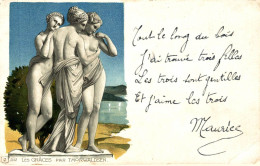 Tout le long du bois
J'ai trouvé trois filles
Les trois sont gentilles
Et j'aime les trois
Maurice
LES GRÂCES PAR THORWALDSEN